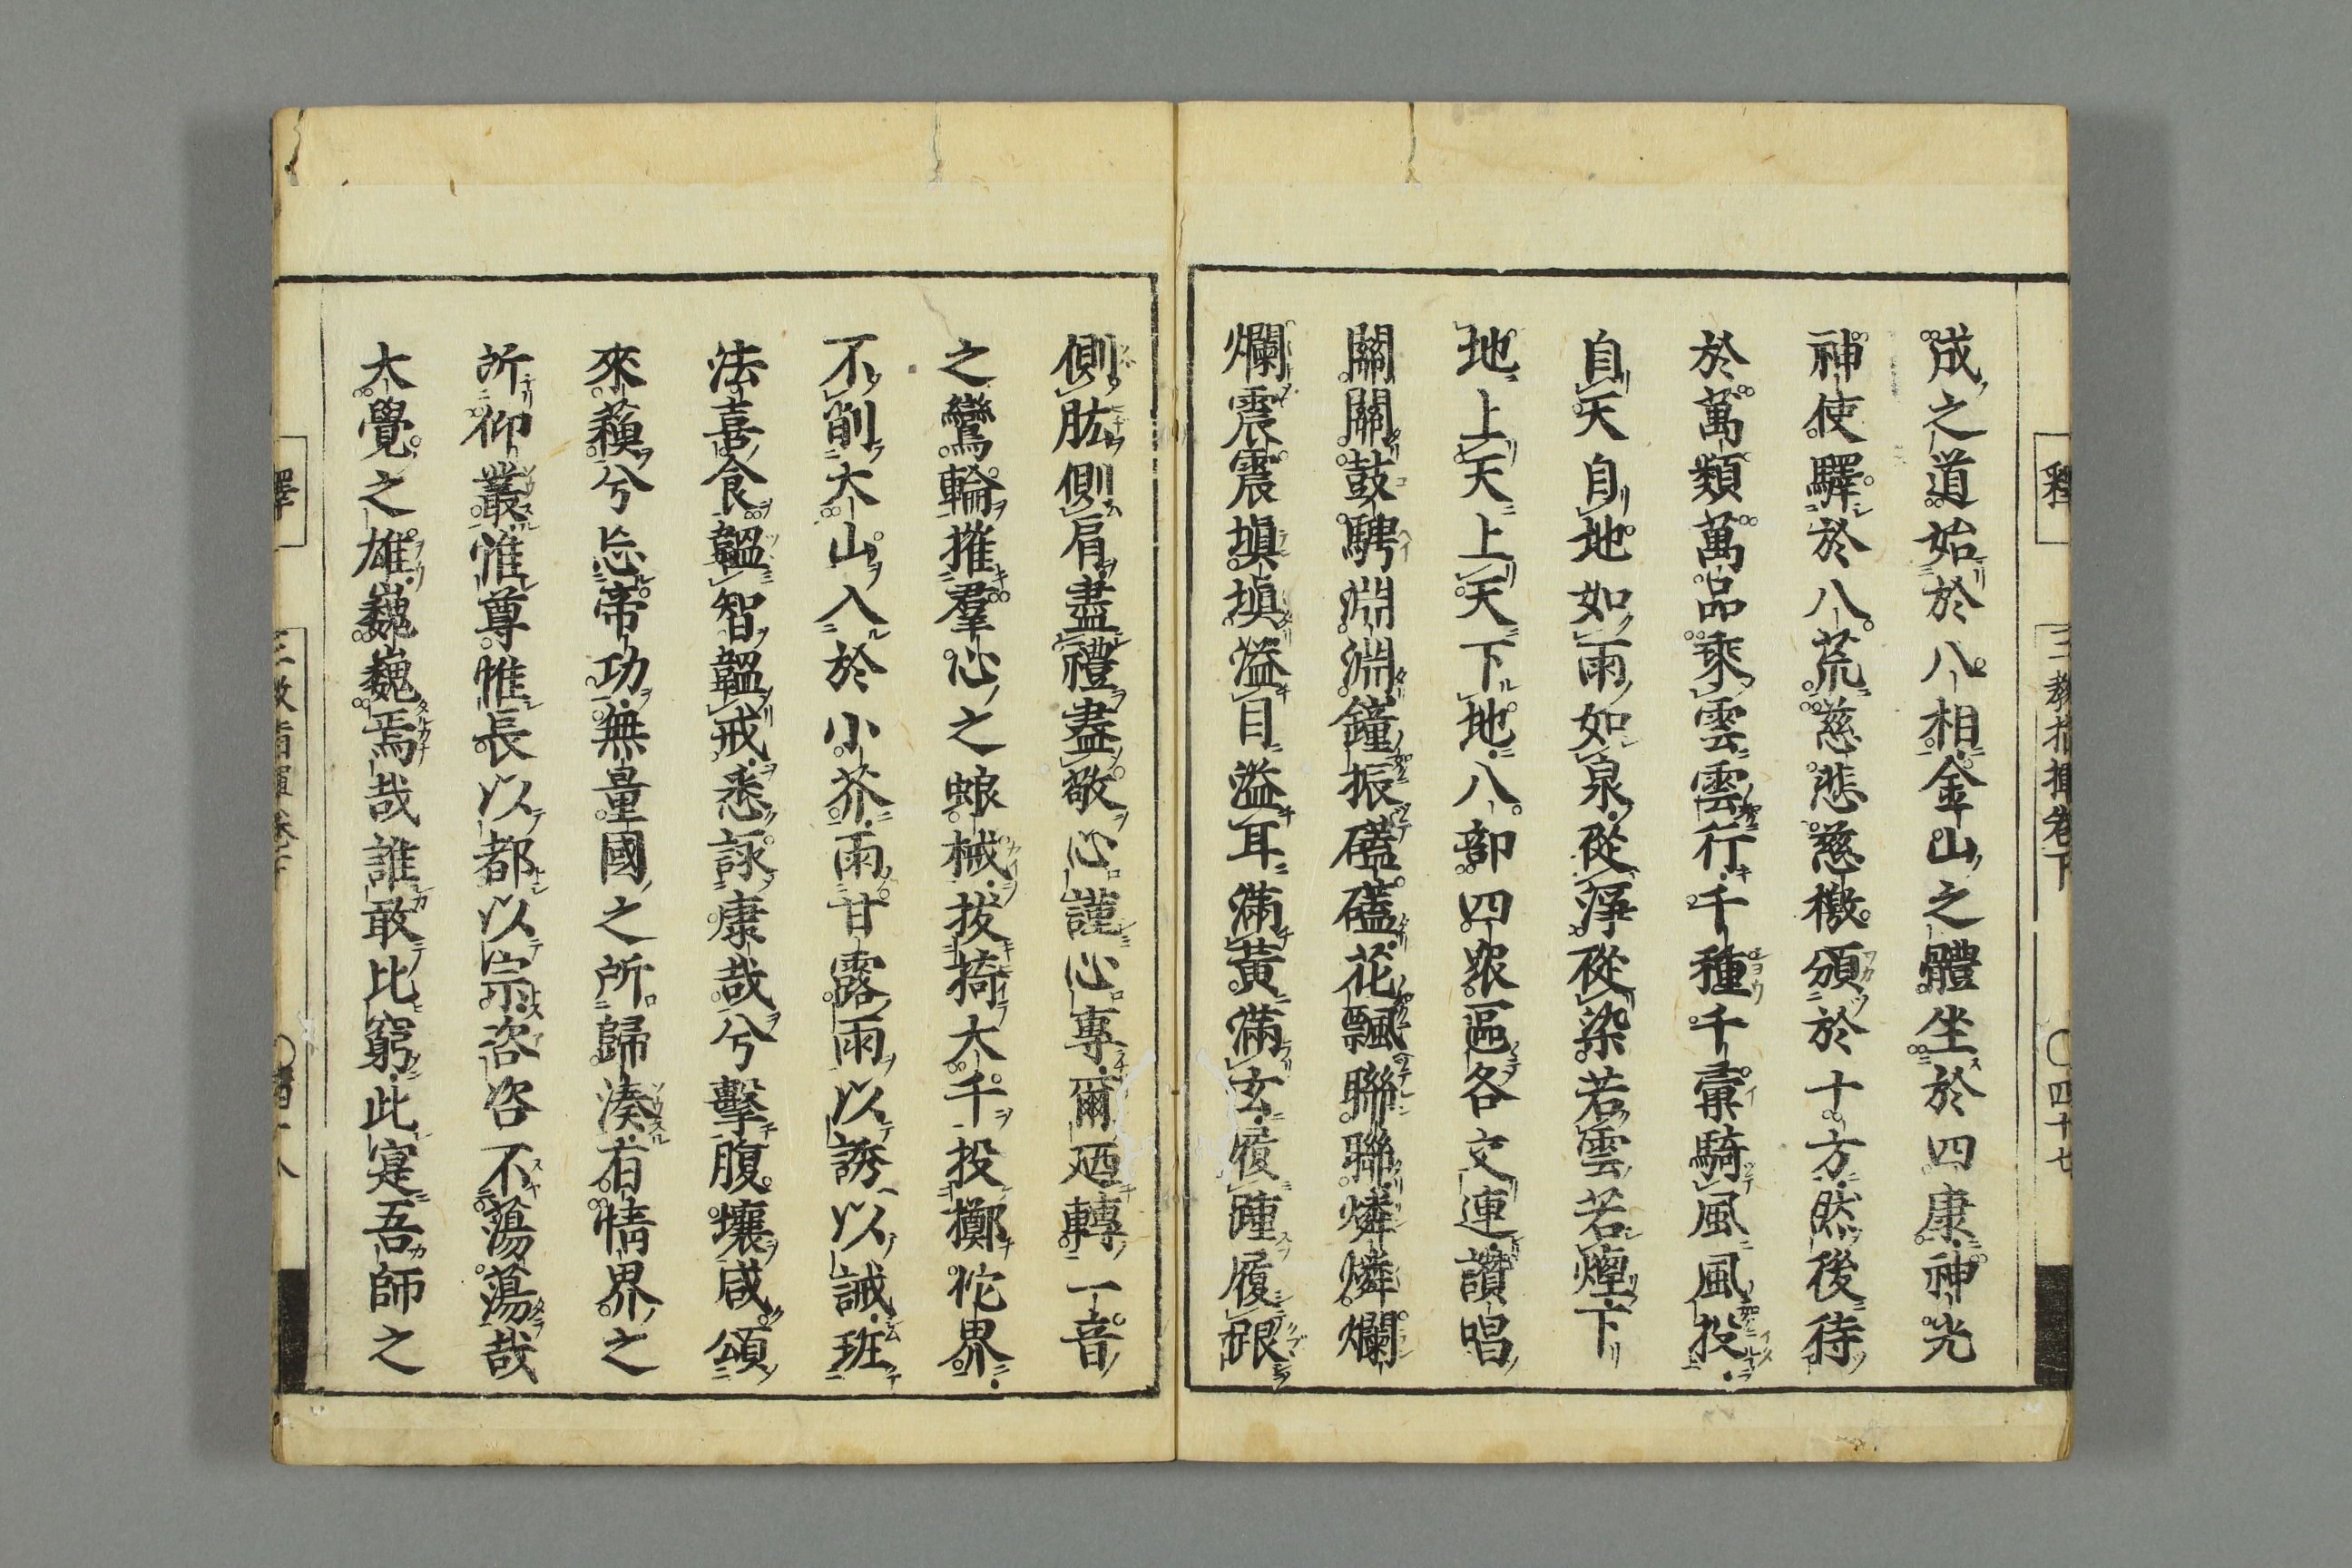 釋
三教指揮卷下
〇四十七
成之道始於八相金山之體坐於四康神光
神使驛於八荒慈悲慈檄頒於十方然後待
於萬類萬品乘雲雲行千種千彙騎風風投
自天自地如雨如泉從淨從染若雲若煙下
地上天上天下地八部四衆區各交連讚唱
關關鼓騁淵淵鐘振礚礚花飄聯聯燐燐爛
爛震震塡塡溢目溢耳滿黃滿玄履踵履跟
側肱側肩盡禮盡敬心謹心專爾廼轉一音
之鸞輪摧羣心之蜋械拔掎大千投擲佗界
不削大山入於小芥雨甘露雨以誘以誡班
法喜食韞智韞戒悉詠康哉兮擊腹壤咸頌
來蘓兮忘帝功無量國之所歸湊有情界之
所仰叢惟尊惟長以都以宗咨咨不蕩蕩哉
大覺之雄巍巍焉哉誰敢比窮此寔吾師之